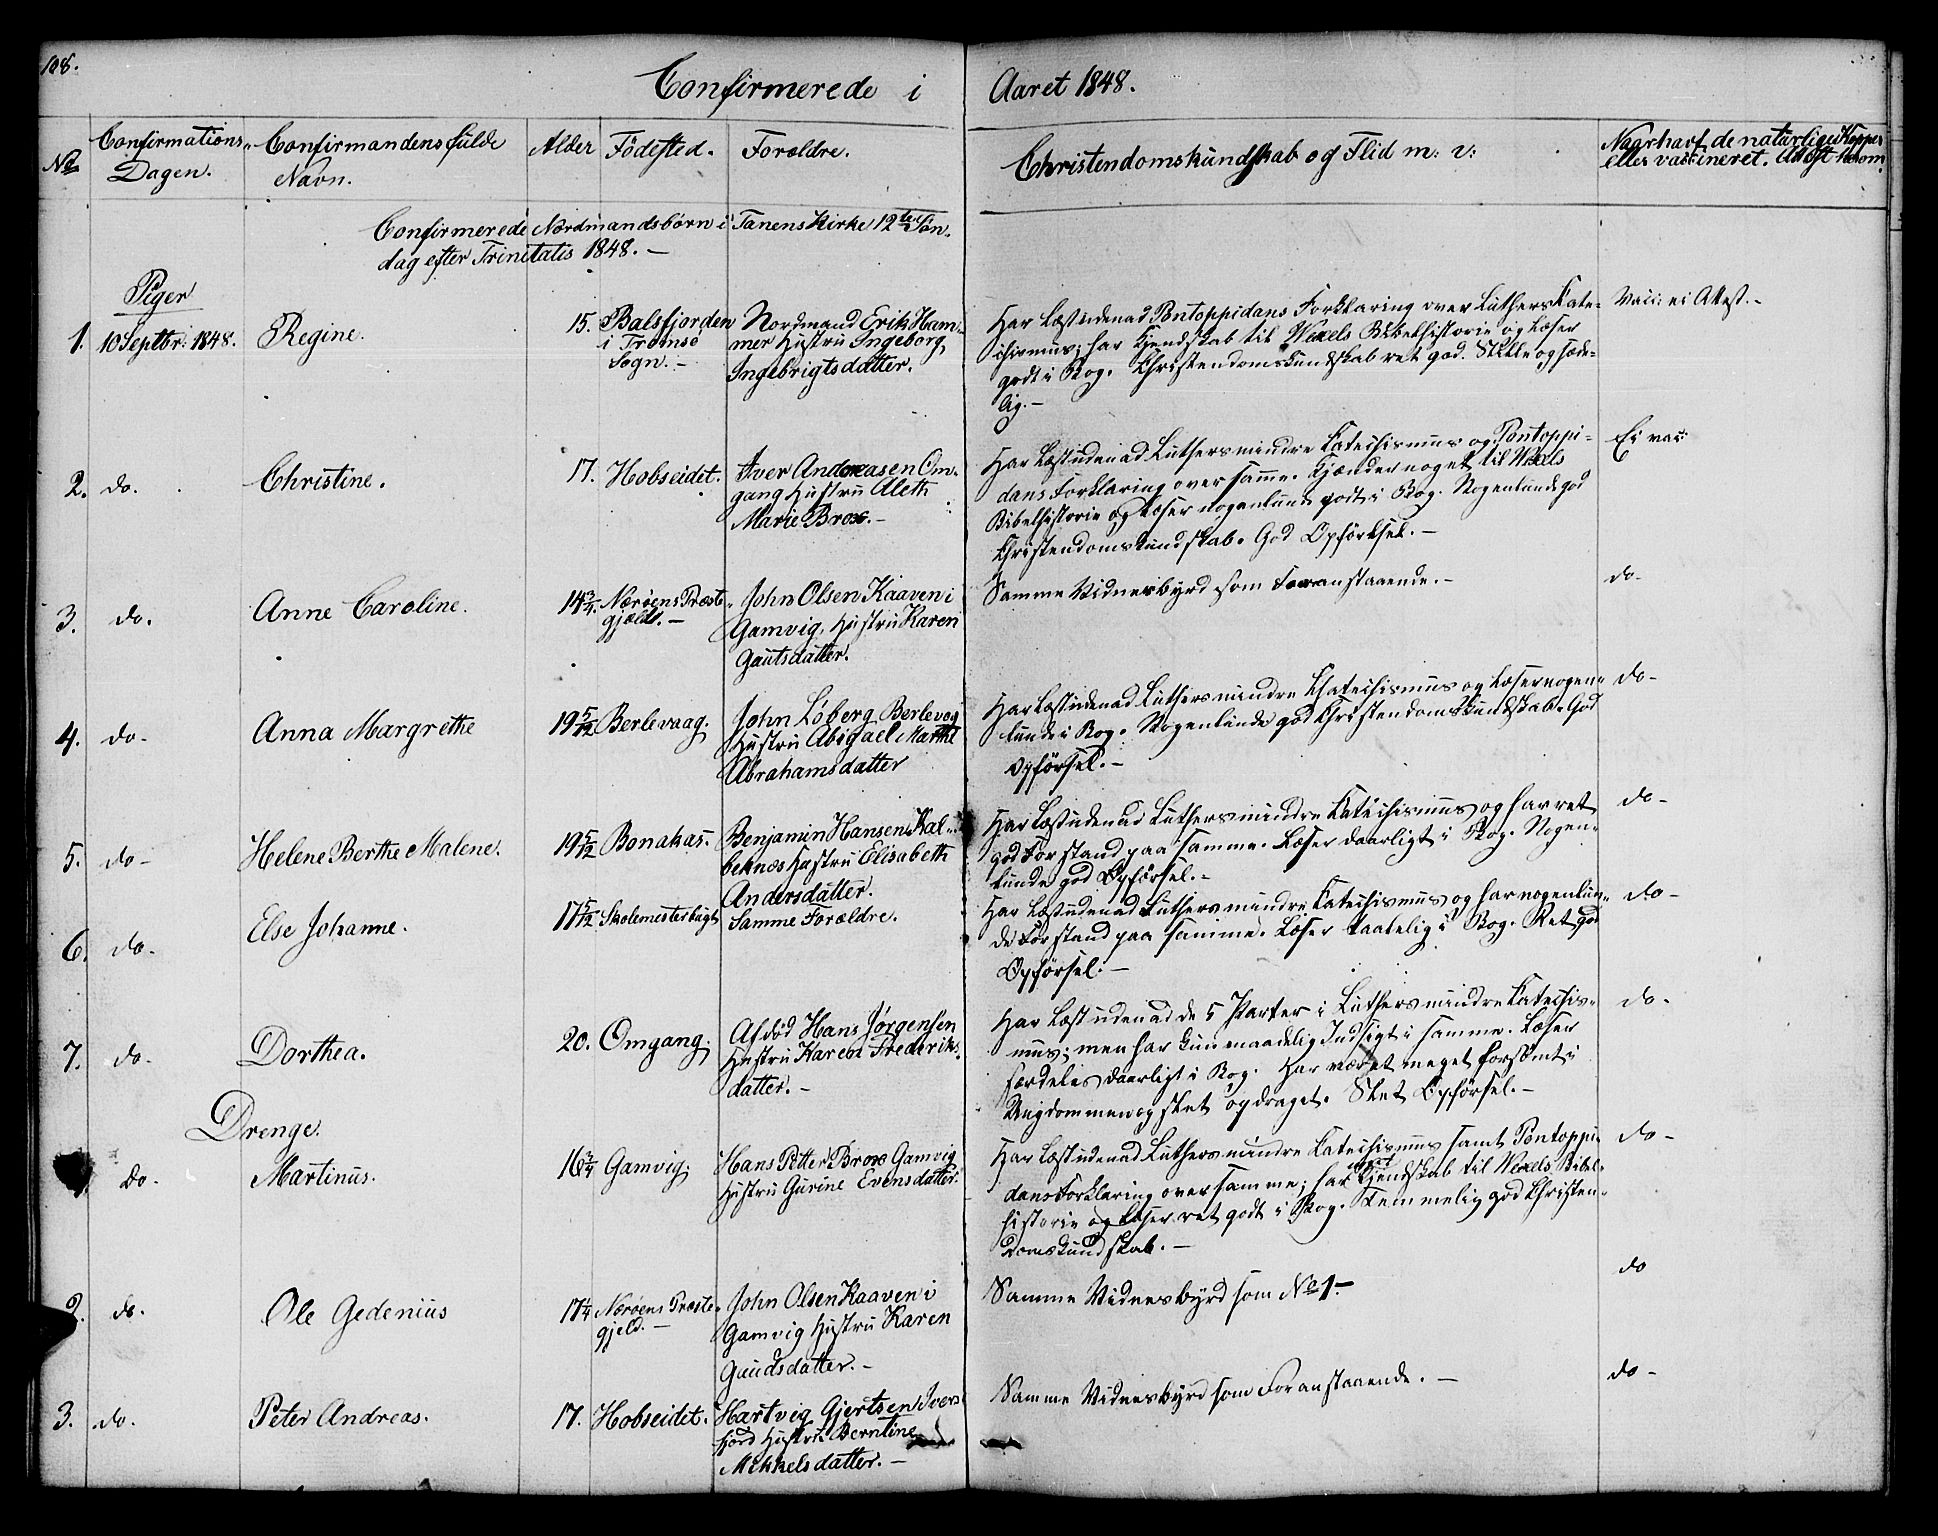 108.
Confirmerede i Aaret 1848.
No
Confirmations
Dagen.
Confirmandens fulde
Navn.
Alder
Födested.
Forældre.
Christendomskundskab og Flid m: v:
Naar havt de naturlige Kopper
eller vaccineret. Attest herom.
Confirmerede Nordmandsbörn i Tanens Kirke 12te Sön-
dag efter Trinitatis 1848. –
Piger
1. 10 Septbr: 1848. Regine. 15.
Balsfjorden
i Tromsö
Sogn. –
Nordmand Erik Ham-
mer Hustru Ingeborg
Ingebrigtsdatter.
Har læst udenad Pontoppidans Forklaring over Luthers Kate-
chismus; har Kjendskab til Wexels Bibelhistorie og læser
godt i Bog. Christendomskundskab ret god. Stille og sæde-
lig. –
Vacc: ei Attest. –
2. do. Christine. 17. Hobseidet.
Iver Andreasen Om-
gang Hustru Aleth
Marie Brox. –
Har læst udenad Luthers mindre Katechismus og Pontoppi-
dans Forklaring over samme. Kjender noget til Wexels
Bibelhistorie og læser nogenlunde godt i Bog. Nogenlunde god
Christendomskundskab. God Opförsel. –
Ei vac:
3. do. Anne Caroline. 14 3/4.
Nærøens Præste-
gjeld. –
John Olsen Kaaven i
Gamvig, Hustru Karen
Gautsdatter.
Samme Vidnesbyrd som Foranstaaende. –
do.
4. do. Anna Margrethe 19 5/12 Berlevaag.
John Løberg Berlevog
Hustru Abigael Marthe
Abrahamsdatter
Har læst udenad Luthers mindre Chatechismus og læser nogen-
lunde i Bog. Nogenlunde god Christendomskundskab. God
Opförsel. –
do –
5. do – Helene Berthe Malene. 19 5/12 Bonakas.
Benjamin Hansen Kal-
beknæs Hustru Elisabeth
Andersdatter.
Har læst udenad Luthers mindre Katechismus og har ret
god Forstand paa samme. Læser daarligt i Bog. Nogen-
lunde god Opförsel. –
do –
6. do. Else Johanne. 17 5/12 Skolemesterbugt
Samme Forældre.
Har læst udenad Luthers mindre Katechismus og har nogenlun-
de Forstand paa samme. Læser taalelig i Bog. Ret god
Opförsel. –
do –
7. do. Dorthea. 20. Omgang.
Afdöd Hans Jørgensen
Hustru Karen Frederiks-
datter. –
Har læst udenad de 5 Parter i Luthers mindre Katechis-
mus; men har kun maadelig Indsigt i samme. Læser
særdeles daarligt i Bog. Har været meget forsömt i
Ungdommen og slet opdraget. Slet Opförsel. –
do.
Drenge.
do. Martinus. 16 3/4 Gamvig.
Hans Petter Brox Gamvig
Hustru Gurine Evensdatter.
Har læst udenad Luthers mindre Katechismus samt Pontoppi-
dans Forklaring over samme; har Kjendskab til Wexels Bibel-
historie og læser ret godt i Bog. Temmelig god Christen-
domskundskab. –
do –
2. do. Ole Gedenius 17 1/4
Nærøens Præste-
gjeld. –
John Olsen Kaaven i
Gamvig Hustru Karen
Gaudsdatter. –
Samme Vidnesbyrd som No 1. –
do
3. do. Peter Andreas. 17. Hobseidet.
Hartvig Gjertsen Ivers-
fjord Hustru Berntine
Mekkelsdatter. –
Samme Vidnesbyrd som Foranstaaende. –
do –